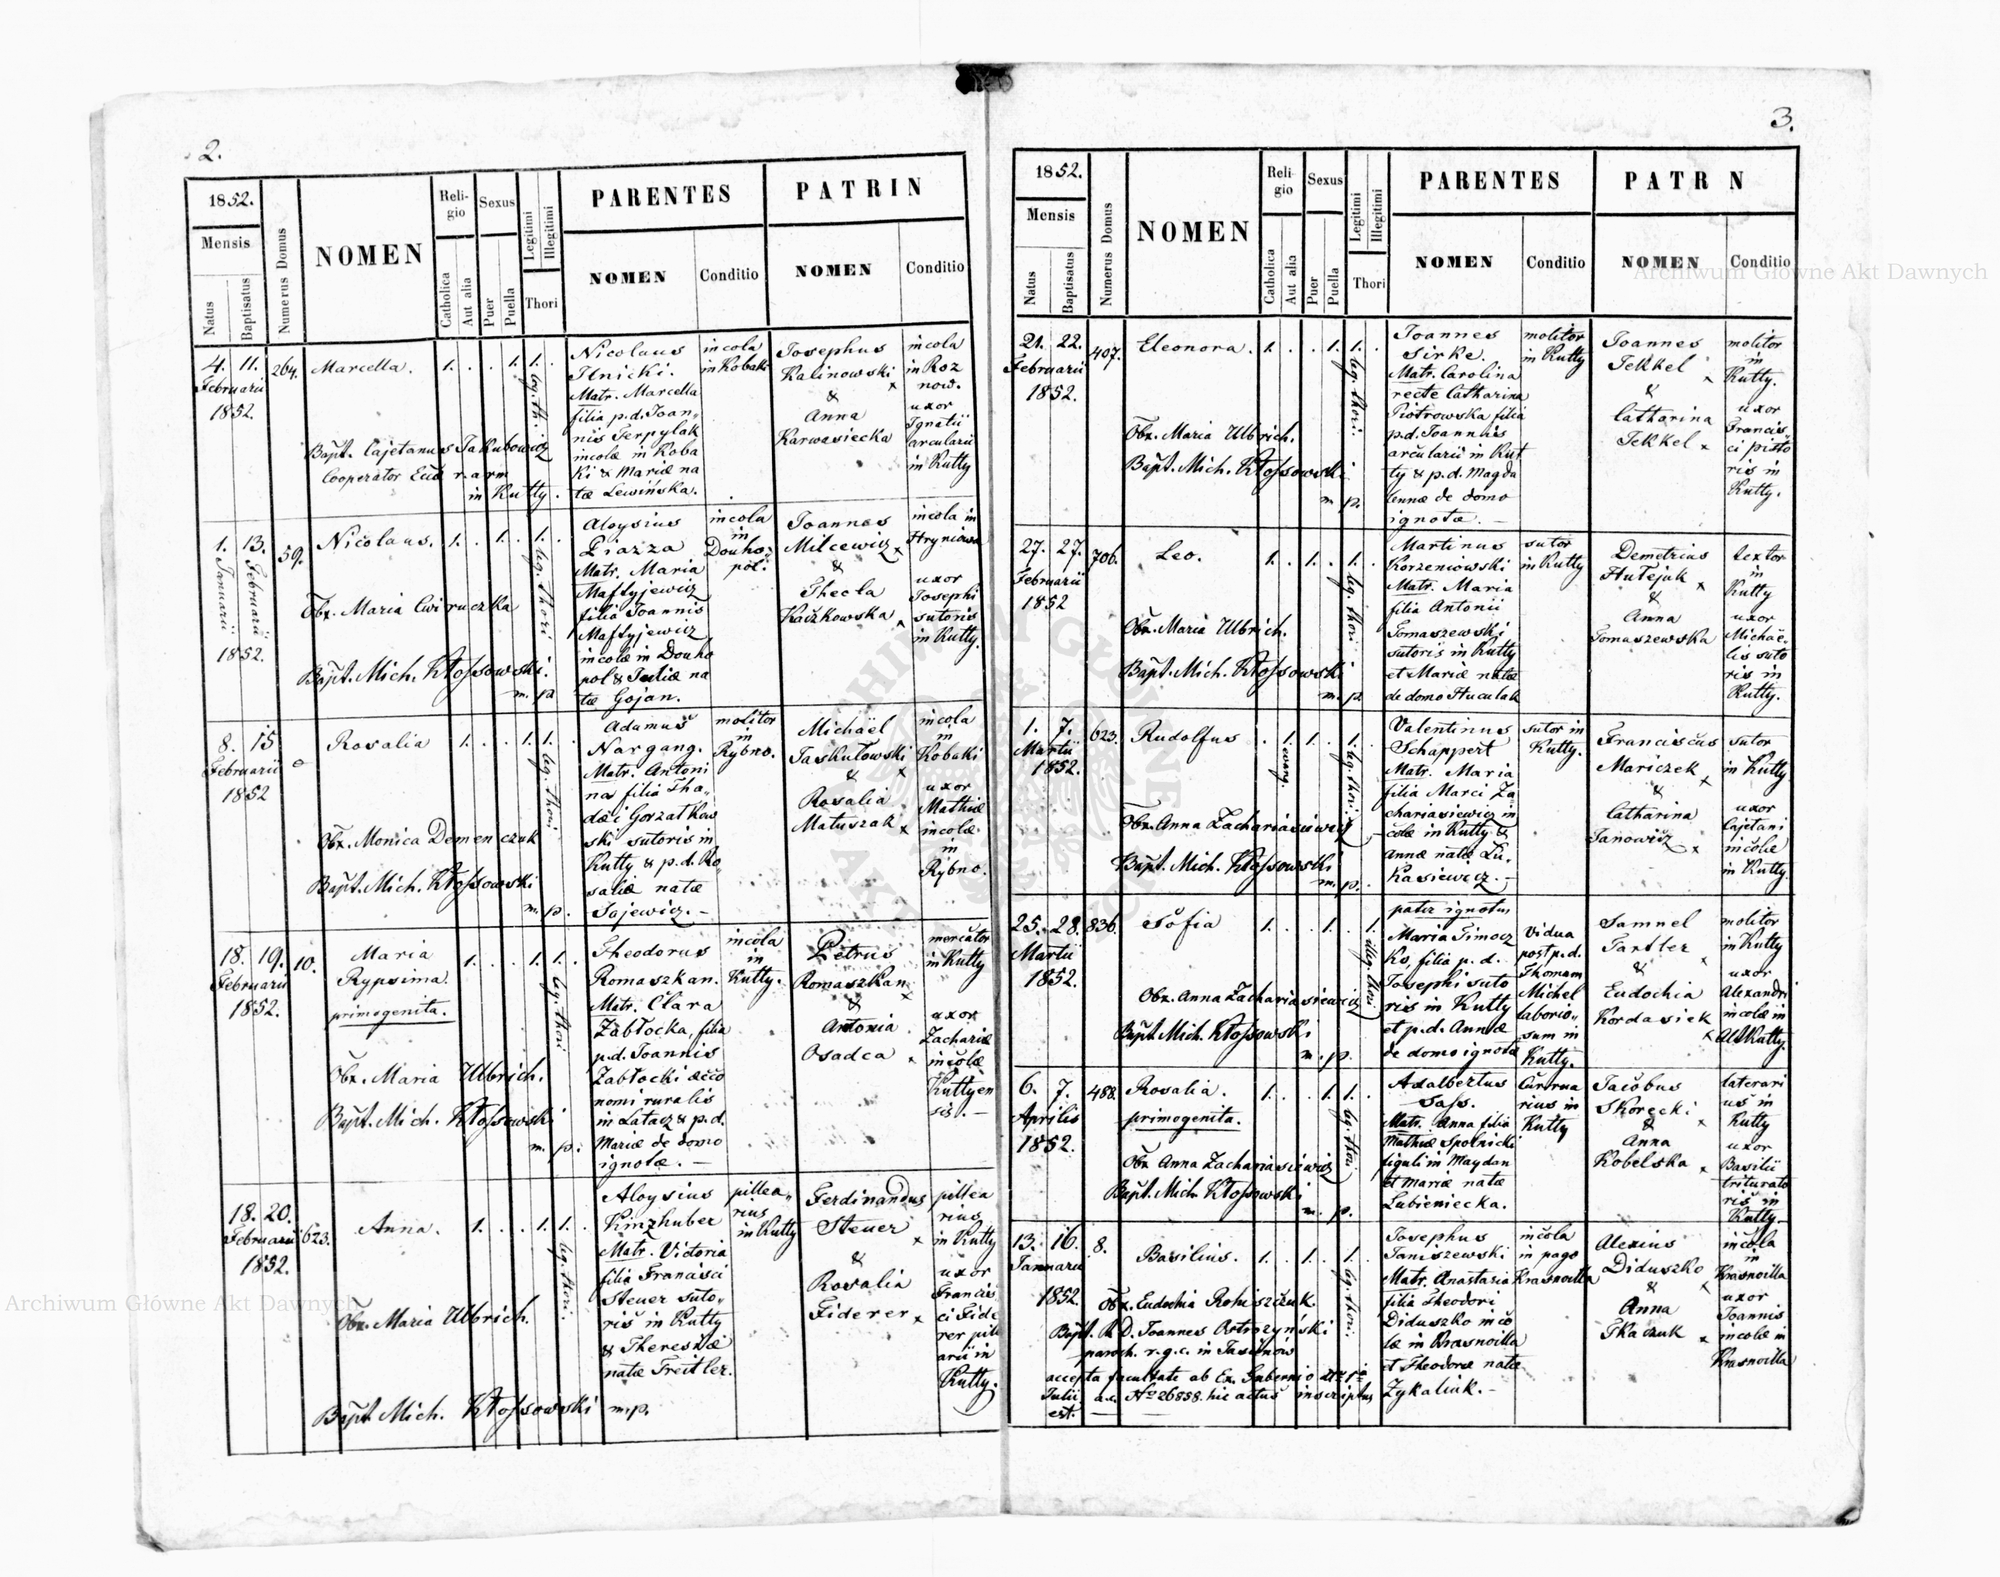 2.
1852.
Mensis
Natus
Baptisatus
Numerus Domus
NOMEN
Religio
Catholica
Aut alia
Sexus
Puer
Puella
Legitimi
Illegitimi
Thori
PARENTES
NOMEN
Conditio
PATRIN
NOMEN
Conditio
4. 11.
Februarii
1852.
264.
Marcella.
1. . . 1. 1. .
leg. thori.
Bapt. Cajetanus Jakubowicz
Cooperator r. arm
in Kutty.
Nicolaus
Ilnicki.
Matr. Marcella
filia p.d. Joan„
nis Terpylak
incolæ in Koba
ki & Mariæ na
tæ Lewińska.
incola
in Kobaki
Josephus
Kalinowski
&
Anna
Karwasiecka
incola
in Roz
now.
uxor
Ignatii
arcularii
in Kutty
1. 13.
Januarii
Februarii
1852.
59.
Nicolaus.
1. . 1. . 1. .
leg. thori
Obx. Maria Cwiruczka
Bapt. Mich. Kłossowski.
m. p.
Aloysius
Piazza
Matr. Maria
Maftyjewicz
filia Joannis
Maftyjewicz
incolæ in Douho
pol & Juliæ na
tæ Gojan.
incola
in
Douho„
pol.
Joannes
Milcewicz
&
Thecla
Kaczkowska
incola in
Hryniowa
uxor
Josephi
sutoris
in Kutty.
8. 15
Februarii
1852
Rosalia
1. . . 1. 1. .
leg. thori
Obx. Monica Demenczuk
Bapt. Mich. Kłossowski
m. p.
Adamus
Nargang.
Matr. Antoni
na filia Tha„
dæi Gorzatkow
ski sutoris in
Kutty & p.d. Ro„
saliæ natæ
Jajewicz. —
molitor
in
Rybno.
Michaël
Jaskulowski
&
Rosalia
Matuszak
incola
in
Kobaki
uxor
Mathiæ
incolæ
in
Rybno.
18. 19.
Februarii
1852.
10.
Maria
Rypsima.
primogenita.
1. . . 1. 1. .
leg. thori
Obx. Maria Ulbrich.
Bapt. Mich. Kłossowski
m. p.
Theodorus
Romaszkan.
Matr. Clara
Zabłocka, filia
p.d. Joannis
Zabłocki œco
nomi ruralis
in Latacz & p.d.
Mariæ de domo
ignotæ. —
incola
in
Kutty.
Petrus
Romaszkan
&
Antonia
Osadca
mercator
in Kutty
uxor
Zachariæ
incolæ
Kuttyen
sis. —
18. 20.
Februarii
1852.
623.
Anna.
1. . . 1. 1. .
leg. thori.
Obx. Maria Ulbrich.
Bapt. Mich. Kłossowski m.p.
Aloysius
Kinzhuber
Matr. Victoria
filia Francisci
Steuer suto„
ris in Kutty
& Theresiæ
natæ Treitler.
pillea„
rius
in Kutty
Ferdinandus
Steuer
&
Rosalia
Fiderer
pillea
rius
in Kutty
uxor
Francis
ci Fide
rer pille
arii in
Kutty.
3.
1852.
Mensis
Natus
Baptisatus
Numerus Domus
NOMEN
Religio
Catholica
Aut alia
Sexus
Puer
Puella
Legitimi
Illegitimi
Thori
PARENTES
NOMEN
Conditio
PATR N
NOMEN
Conditio
21. 22.
Februarii
1852.
407.
Eleonora.
1. . . 1. 1. .
leg. thori.
Obx. Maria Ulbrich.
Bapt. Mich. Kłossowski
m. p.
Joannes
Sirke.
Matr. Carolina
recte Catharina
Piotrowska filia
p.d. Joannis
arcularii in Kut
ty & p.d. Magda
lennæ de domo
ignotæ. —
molitor
in Kutty
Joannes
Jekkel
&
Catharina
Jekkel
molitor
in
Kutty.
uxor
Francis„
ci pisto
ris in
Kutty.
27. 27.
Februarii
1852
706.
Leo.
1. . 1. . 1.
leg. thori.
Obx. Maria Ulbrich.
Bapt. Mich. Kłossowski
m. p.
Martinus
Korzeniowski
Matr. Maria
filia Antonii
Tomaszewski
sutoris in Kutty
et Mariæ natæ
de domo Huculak
sutor
in Kutty
Demetrius
Hutejuk
&
Anna
Tomaszewska
textor
in
Kutty
uxor
Michaë„
lis suto
ris in
Kutty.
1. 7.
Martii
1852.
623.
Rudolfus
. 1. 1. . 1.
evang.
leg. thori
Obx. Anna Zachariasiewicz
Bapt. Mich. Kłossowski
m. p.
Valentinus
Schappert
Matr. Maria
filia Marci Za„
chariasiewicz in„
colæ in Kutty &
Annæ natæ Łu„
kasiewicz. —
sutor in
Kutty.
Franciscus
Mariczek
&
Catharina
Janowicz
sutor
in Kutty
uxor
Cajetani
incolæ
in Kutty
25. 28.
Martii
1852.
836.
Sofia
1. . . 1. . 1.
illeg. thori
Obx. Anna Zachariasiewicz
Bapt. Mich. Kłossowski
m. p.
pater ignotus
Maria Timocz
ko, filia p. d.
Josephi suto
ris in Kutty
et p.d. Annæ
de domo ignotæ
Vidua
post p.d.
Thomam
Michel
laborio„
sum in
Kutty.
Samuel
Tartler
&
Eudochia
Kordasiek
molitor
in Kutty
uxor
Alexandri
incolæ in
Alt Kutty.
6. 7.
Aprilis
1852.
488.
Rosalia.
primogenita.
1. . . 1. 1.
leg. thori
Obx. Anna Zachariasiewicz
Bapt. Mich. Kłossowski
m. p.
Adalbertus
Sass.
Matr. Anna filia
Mathiæ Spolnicki
figuli in Maydan
et Mariæ natæ
Lubieniecka.
rius in
Kutty
Jacobus
Skorecki
&
Anna
Kobelska
laterari
us in
Kutty
uxor
Basilii
triturato
ris in
Kutty.
13. 16.
Januarii
1852.
8.
Basilius.
1. . 1. . 1.
leg. thori.
Obx. Eudochia Rohiszczuk.
Bapt. R. D. Joannes Ostrożyński
paroch. r.g.c. in Jasinów
accepta facultate ab Ex. Gubernio
Julii a.c. No 26858. hic actus inscriptus
est.
Josephus
Janiszewski
Matr. Anastasia
filia Theodori
Diduszko inco
læ in Krasnoilla
et Theodoræ natæ
Zykaliuk. —
incola
in pago
Krasnoilla
Alexius
Diduszko
&
Anna
Tkaczuk
incola
in
Krasnoilla
uxor
Joannis
incolæ in
Krasnoilla
Archiwum Główne Akt Dawnych
Archiwum Główne Akt Dawnych
ARCHIWUM GŁÓWNE AKT DAWNYCH